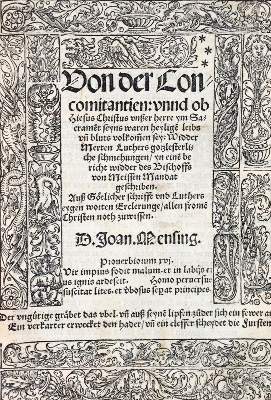 Von der Con
comitantien: vnnd ob
Jhesus Christus vnßer herre ym Sa-
crament seyns waren heylige leibs
vn bluts volkomen sey: Widder
Merten Luthers gotzlesterli-
che schmehungen/ yn eine be
richt widder des Bischoffs
von Meissen Mandat
geschriben.
Auß Götlicher schrifft vnd Luthers
eygen worten Erclerunge/ allen frome
Christen noth zuwissen.
D. Joan. Mensing.
Prouerbiorum xvj.
Vir impius fodit malum. et in labijs ei
us ignis ardescit. Homo peruersus
suscitat lites. et vbosus sepat principes
Der vngütige gräbet das vbel. vn auß seyne lipsen züdet sich ein fewer an
Ein verkarter erwecket den hader/ vn ein cleffer scheydet die Fursten